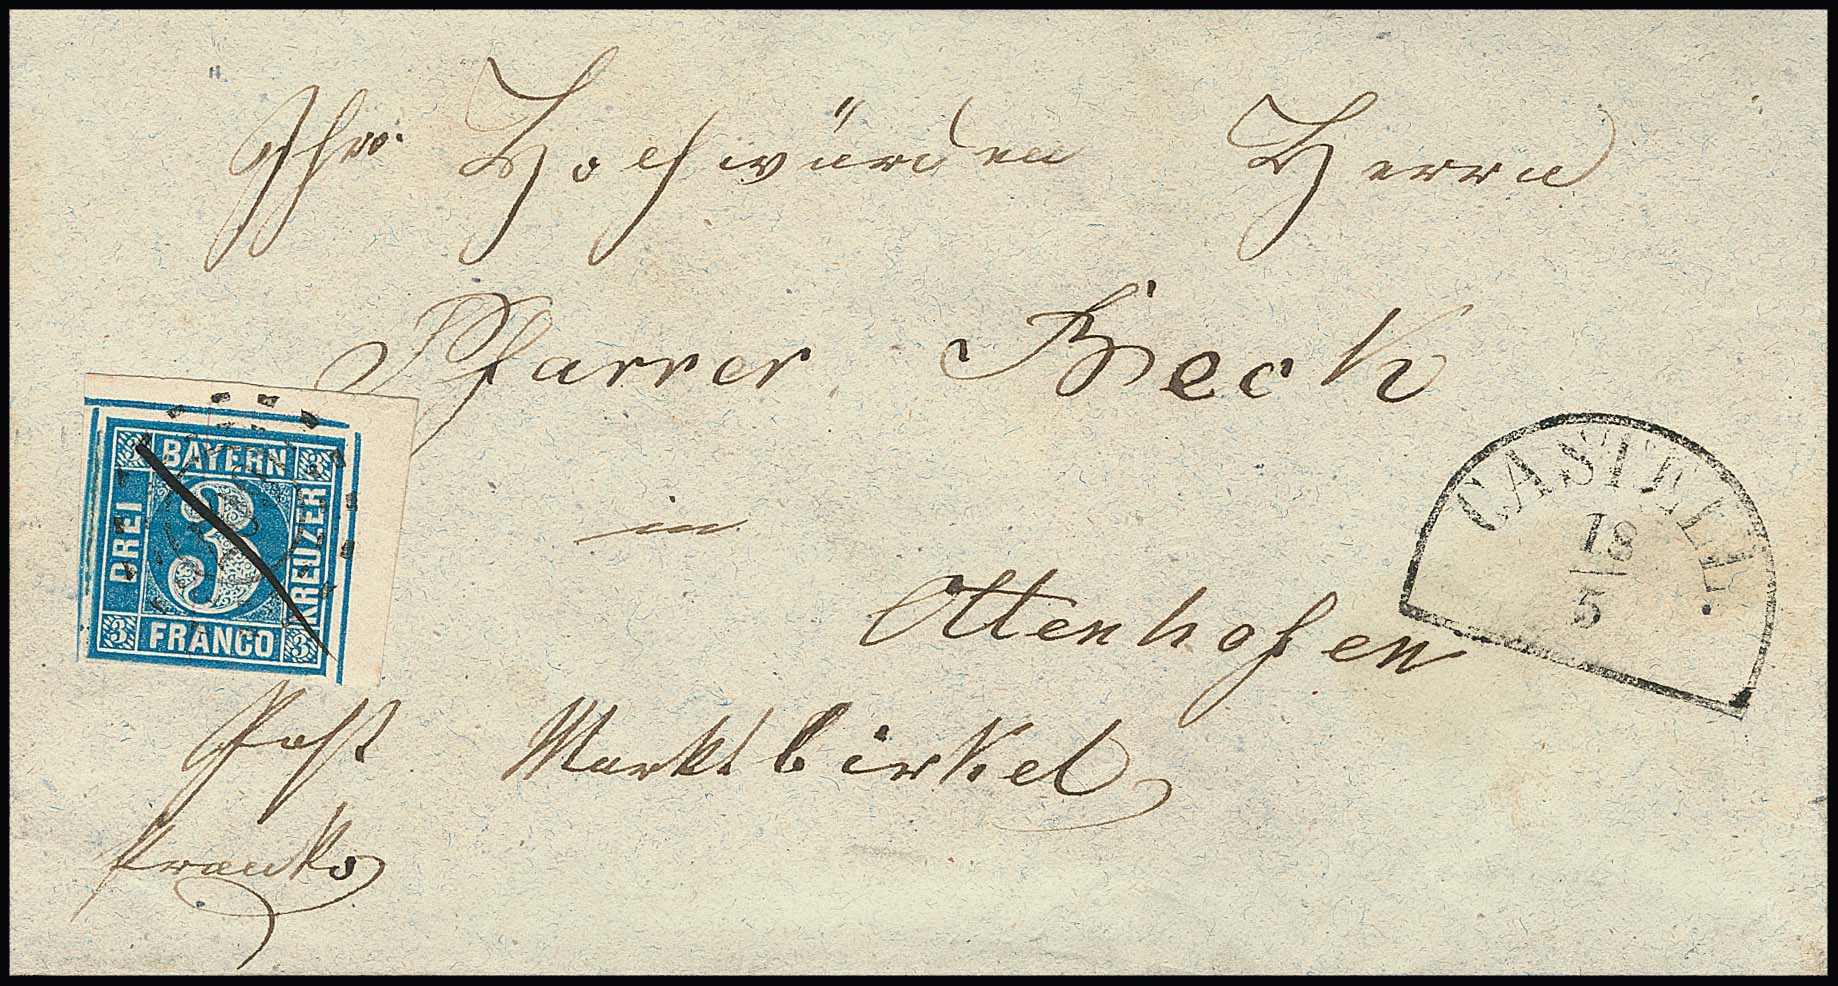 Ihro. Hochwürden Herrn
Pfarrer Beck
in
Ottenhofen
Post Marktbirkel
franko
BAYERN
DREI
KREUZER
FRANCO
3
3
3
CASTELL.
18
5